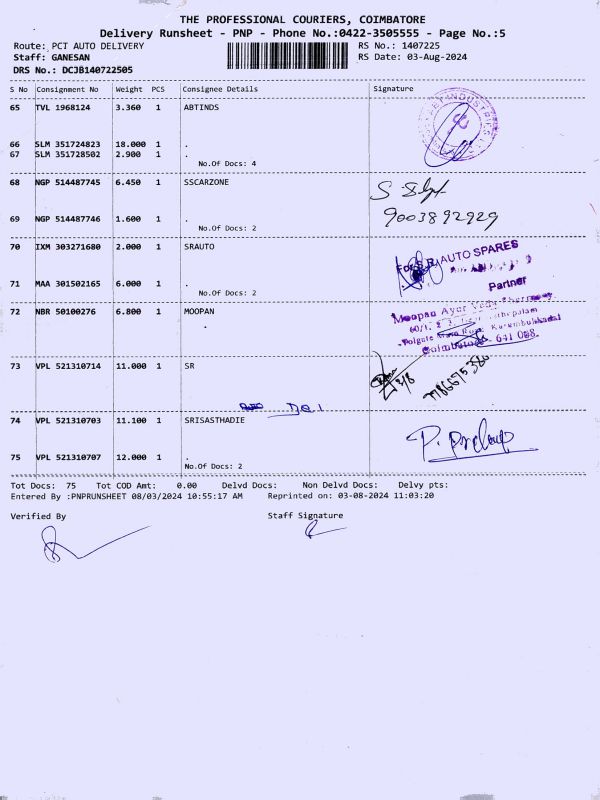 THE PROFESSIONAL COURIERS, COIMBATORE
Delivery Runsheet - PNP - Phone No.:0422-3505555 - Page No.:5
Route: PCT AUTO DELIVERY RS No.: 1407225
Staff: GANESAN RS Date: 03-Aug-2024
DRS No.: DCJB140722505
S No Consignment No Weight PCS Consignee Details Signature
65 TVL 1968124 3.360 1 ABTINDS
66 SLM 351724823 18.000 1 .
67 SLM 351728502 2.900 1 .
No.Of Docs: 4
68 NGP 514487745 6.450 1 SSCARZONE
69 NGP 514487746 1.600 1 . 9003892929
No.Of Docs: 2
70 IXM 303271680 2.000 1 SRAUTO
AUTO SPARES
71 MAA 301502165 6.000 1 .
Partner
No.Of Docs: 2
72 NBR 50100276 6.800 1 MOOPAN
Moopan Ayur
Coimbatore 641
73 VPL 521310714 11.000 1 SR
74 VPL 521310703 11.100 1 SRISASTHADIE
75 VPL 521310707 12.000 1 .
No.Of Docs: 2
Tot Docs: 75 Tot COD Amt: 0.00 Delvd Docs: Non Delvd Docs: Delvy pts:
Entered By :PNPRUNSHEET 08/03/2024 10:55:17 AM Reprinted on: 03-08-2024 11:03:20
Verified By Staff Signature